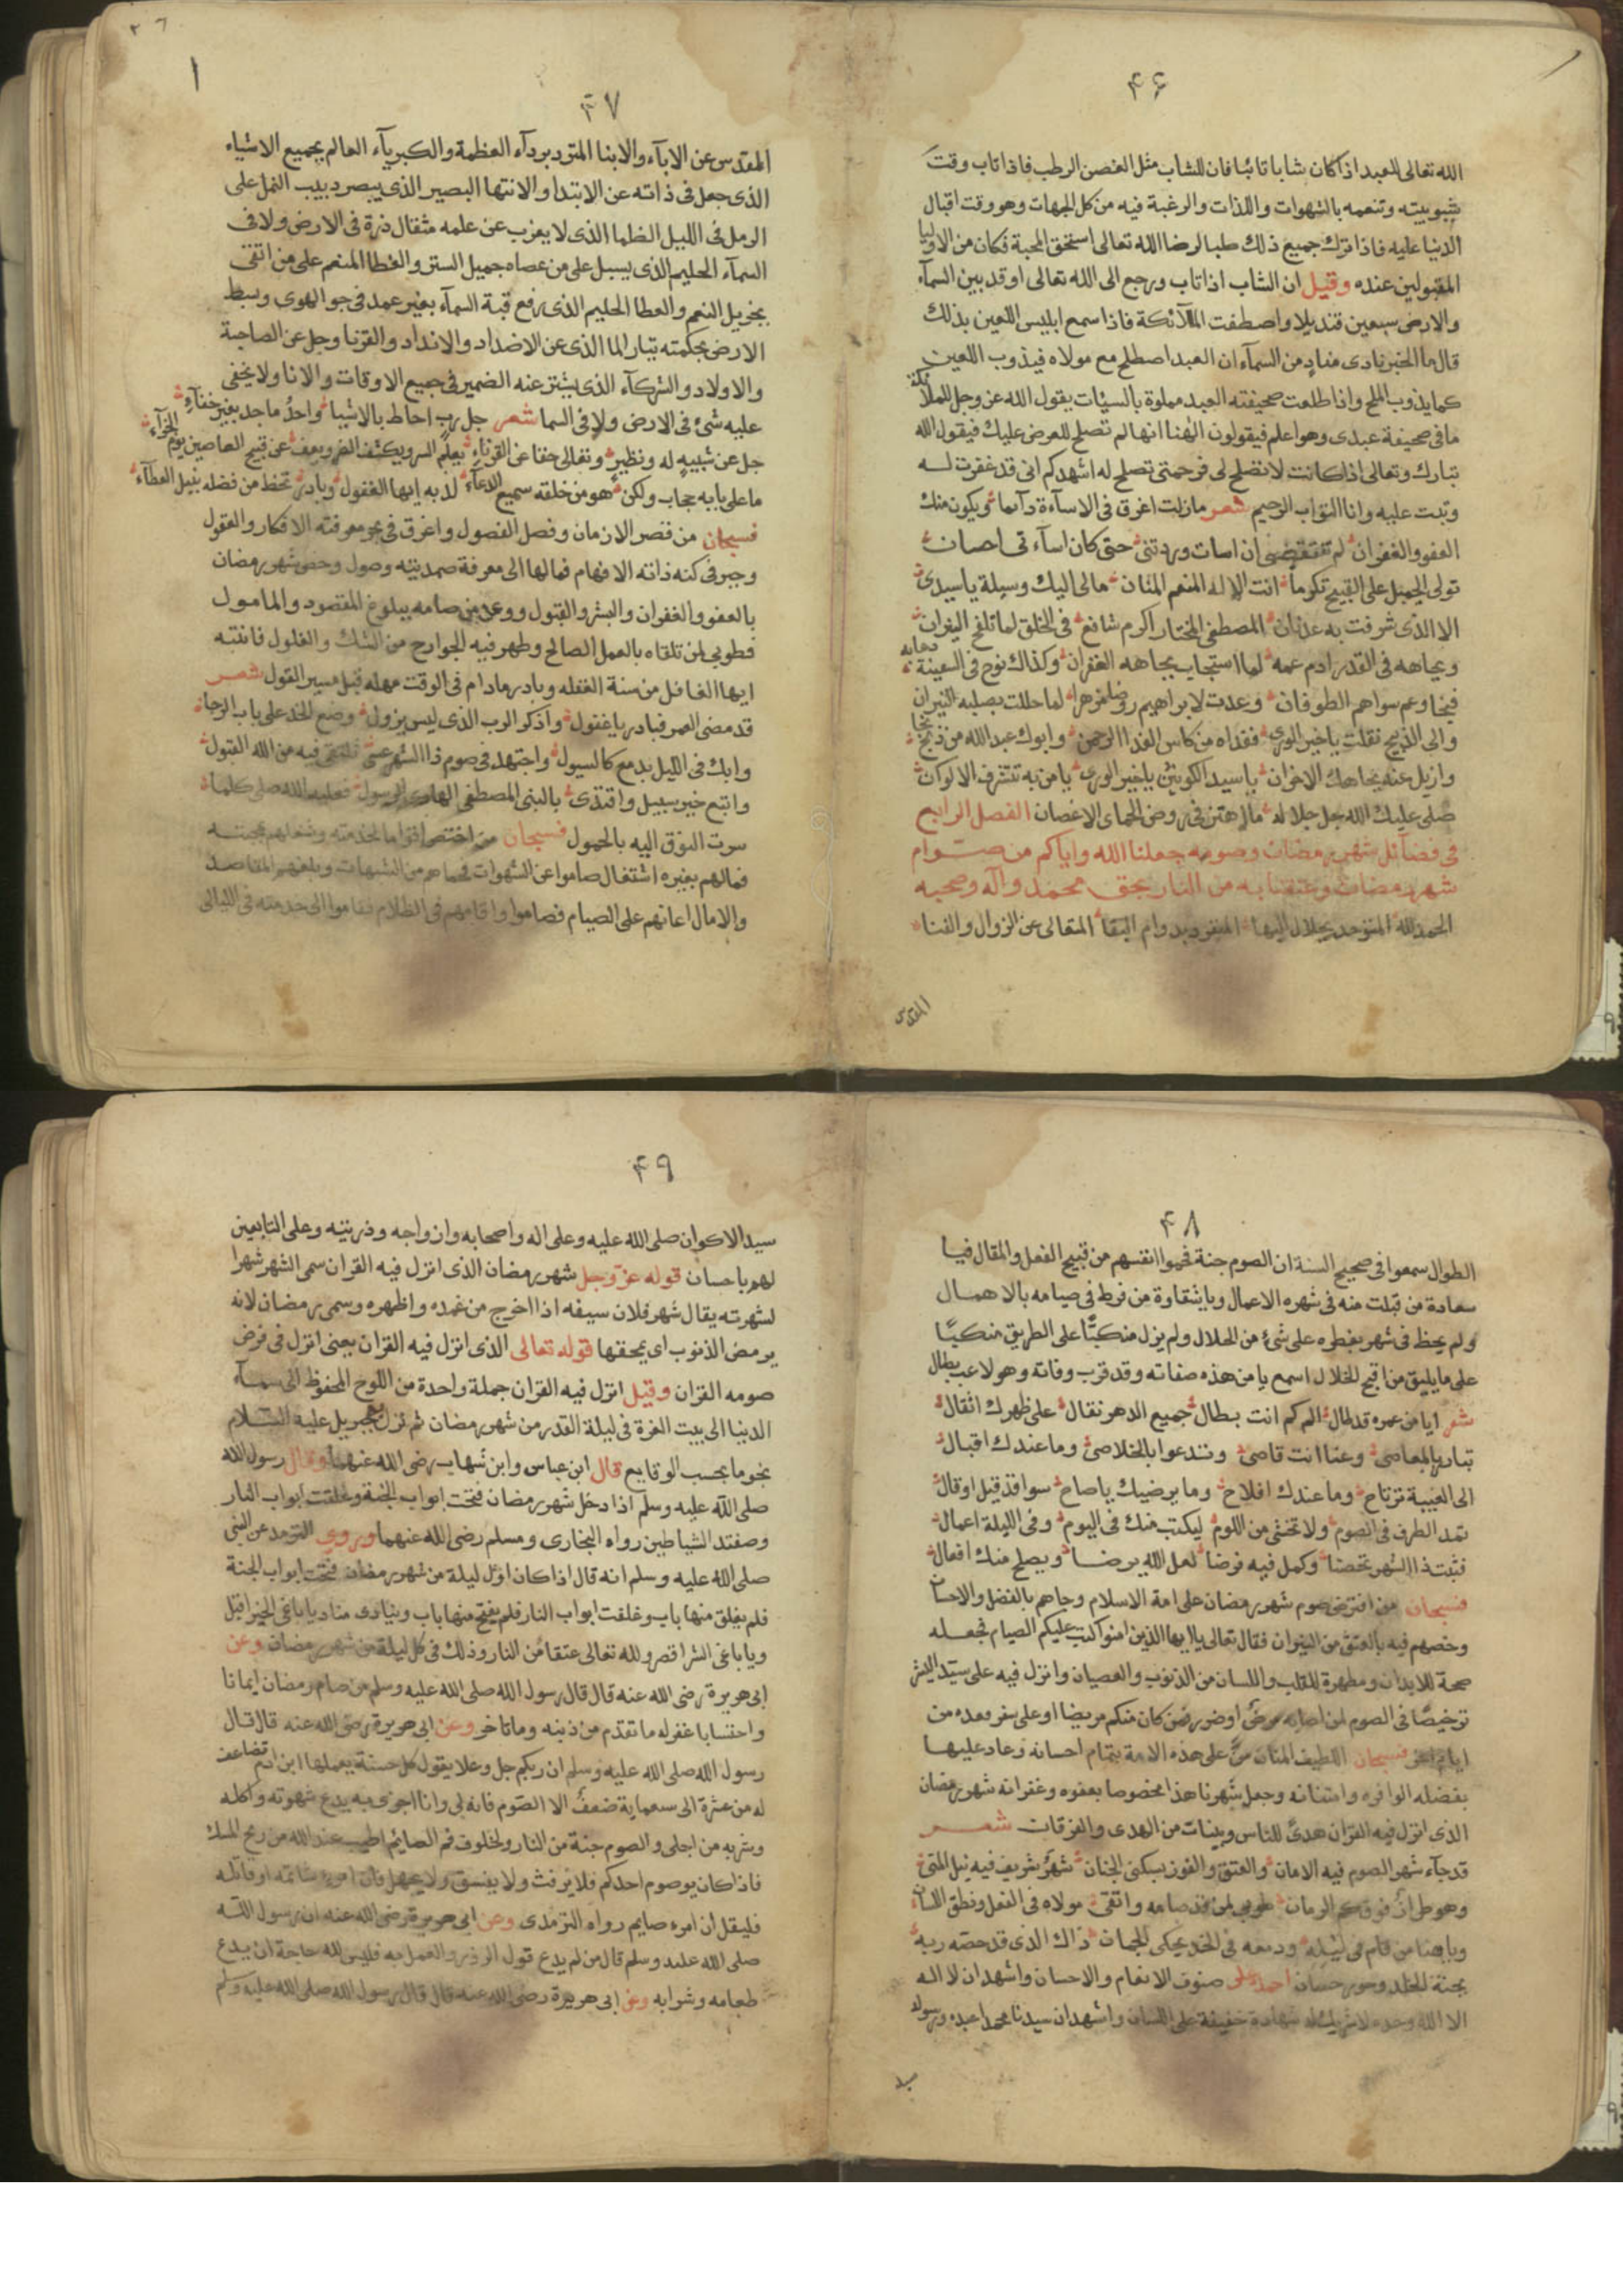 ۴۶
الله تعالى للعبد اذا كان شابا تائبا فان للشاب مثل الغصن الرطب فاذا تاب وقت
شبوبيته وتنعمه بالشهوات واللذات والرغبة فيه من كل الجهات وهو وقت اقبال
الدنيا عليه فاذا ترك جميع ذلك طلبا لرضا الله تعالى استحق المحبة فكان من الاوليا
المقبولين عنده وقيل ان الشاب اذا تاب ورجع الى الله تعالى اوقد بين السمآء
والارض سبعين قنديلا واصطفت الملآئكة فاذا سمع ابليس اللعين بذلك
قال ما الخبر نادى مناد من السمآء ان العبد اصطلح مع مولاه فيذوب اللعين
كما يذوب الملح واذا طلعت صحيفته العبد مملوة بالسيئات يقول الله عز وجل للملائكة
ما فى صحيفة عبدى وهو اعلم فيقولون الهنا انها لم تصلح للعرض عليك فيقول الله
تبارك وتعالى اذا كانت لا تصلح لى فرحمتى تصلح له اشهدكم انى قد غفرت له
وتبت عليه وانا التواب الرحيم شعر مازلت اغرق فى الاسآءة دآئما ويكون منك
العفو والغفران لم تنتقصنى ان اسات وردتنى حتى كان اسآءتى احسان
تولى الجميل على القبيح تكرما انت الاله المنعم المنان مالى اليك وسيلة يا سيدى
الا الذى شرفت به عدنان المصطفى المختار اكرم شافع فى الخلق لما تلفح النيران
وبجاهه فى القدر ادم عمه لما استجاب بجاهه الغفران وكذاك نوح فى السفينة دعا به
فنجا وعم سواهم الطوفان وغدت لابراهيم روضا مزهرا لما حللت بصلبه النيران
والى الذبيح نقلت يا خير الورى ففداه من كاس الفدا الرحمن وابوك عبد الله من ذبح نجا
وازيل عنه بجاهك الاحزان يا سيد الكونين يا خير الورى يا من به تتشرف الاكوان
صلى عليك الله جل جلاله ما اهتز فى روض الحماى الاغصان الفصل الرابع
فى فضآئل شهر رمضان وصومه جعلنا الله واياكم من صوام
شهر رمضان وعتقنا به من النار بحق محمد وآله وصحبه
الحمد لله المتوحد بجلال البها المنفرد بدوام البقا المتعالى عن الزوال والفنا
المقدس
۴۷
المقدس عن الابآء والابنا المتردبردآء العظمة والكبريآء العالم بجميع الاشياء
الذى جعل فى ذاته عن الابتدا والانتها البصير الذى يبصر دبيب النمل على
الرمل فى الليل الظلما الذى لا يعزب عن علمه مثقال ذرة فى الارض ولا فى
السمآء الحليم الذى يسبل على من عصاه جميل الستر والغطا المنعم على من اتقى
بجزيل النعم والعطا الحليم الذى رفع قبة السمآء بغير عمد فى جو الهوى وبسط
الارض بحكمته تيار الما الذى عن الاضداد والانداد والقرنا وجل عن الصاحبة
والاولاد والشركآء الذى يتنزعنه الضمير فى جميع الاوقات والانا ولا يخفى
عليه شئ فى الارض ولا فى السما شعر جل رب احاط بالاشيا واحد ماجد بغير خفآء
جل عن شبيه له ونظير وتعالى حقا عن القرناء يعلم السر ويكشف الضر ويعف عن قبيح العاصين يوم الجزآء
ما على بابه حجاب ولكن هو من خلقه سميع الدعآء لذ به ايها الغفول وبادر تحظ من فضله بنيل العطآء
فسبحان من قصر الازمان وفصل الفصول واغرق فى بحر معرفته الافكار والعقول
وحير فى كنه ذاته الافهام فمالها الى معرفة صمديته وصول وخص شهر رمضان
بالعفو والغفران والبشر والقبول ووعد من صامه ببلوغ المقصود والمامول
فطوبى لمن تلقاه بالعمل الصالح وطهر فيه الجوارح من الشك والغلول فانتبه
ايها الغافل من سنة الغفله وبادر مادام فى الوقت مهله قبل مسير القول شعر
قد مضى العمر فبادر يا غفول واذكر الرب الذى ليس يزول وضع الخد على باب الرجا
وابك فى الليل بدمع كالسيول واجتهد فى صوم ذا الشهر عسى تلتقى فيه من الله القبول
واتبع خير سبيل واقتدى بالنبى المصطفى الهادى الرسول فعليه الله صلى كلما
سرت النوق اليه بالحمول فسبحان من اختص اقواما لخدمته وشغلهم بمحبته
فمالهم بغيره اشتغال صاموا عن الشهوات فحماهم من الشبهات وبلغهم المقاصد
والامال اعانهم على الصيام فصاموا واقامهم فى الظلام فقاموا الى خدمته فى الليالى
۴۸
الطوال سمعوا فى صحيح السنة ان الصوم جنة فحموا انفسهم من قبيح الفعل والمقال فيا
سعادة من قبلت منه فى شهره الاعمال ويا شقاوة من فرط فى صيامه بالاهمال
ولم يحظ فى شهر بفطره على شئ من الحلال ولم يزل منكبًا على الطريق منكبًا
على ما يليق من اقبح الخلال اسمع يا من هذه صفاته وقد قرب وفاته وهو لاعب بطال
شعر ايا من عمره قد طال الى كم انت بطال جميع الدهر نقال على ظهرك اثقال
تبارز بالمعاصى وعنا انت قاصى وتدعوا بالخلاصى وما عندك اقبال
الى الغيبة ترتاح وما عندك افلاح وما يرضيك يا صاح سوا قد قيل او قال
تمد الطرف فى الصوم ولا تخشى من اللوم ليكتب منك فى اليوم وفى الليلة اعمال
فبت ذا الشهر تحضا وكمل فيه فرضا لعل الله يرضا ويصلح منك افعال
فسبحان من افترض صوم شهر رمضان على امة الاسلام وجاهم بالفضل والاحسان
وخصهم فيه بالعتق من النيران فقال تعالى يا ايها الذين امنوا كتب عليكم الصيام فجعله
صحة للابدان ومطهرة للقلب واللسان من الذنوب والعصيان وانزل فيه على سيد البشر
ترخيصًا فى الصوم لمن اصابه مرض او ضر فمن كان منكم مريضا او على سفر فعدة من
ايام اخر فسبحان اللطيف المنان من على هذه الامة بتمام احسانه وعاد عليها
بفضله الوافره وامتنانه وجعل شهرنا هذا مخصوصا بعفوه وغفرانه شهر رمضان
الذى انزل فيه القران هدىً للناس وبينات من الهدى والفرقان شعر
قد جآء شهر الصوم فيه الامان والعتق والفوز بسكنى الجنان شهر شريف فيه نيل المنى
وهو طراز فوق كم الزمان طوبى لمن قد صامه واتقى مولاه فى الفعل ونطق اللسان
ويا هنا من قام فى ليله ودمعه فى الخد يحكى الجمان ذاك الذى قد خصه ربه
بجنة الخلد وحور حسان احمده على صنوف الانعام والاحسان واشهد ان لا اله
الا الله وحده لا شريك له شهادة خفيفة على اللسان واشهد ان سيدنا محمدا عبده ورسوله
سيد
۴۹
سيد الاكوان صلى الله عليه وعلى اله واصحابه وازواجه وذريته وعلى التابعين
لهم باحسان قوله عز وجل شهر رمضان الذى انزل فيه القران سمى الشهر شهرا
لشهرته يقال شهر فلان سيفه اذا اخرج من غمده واظهره وسمى رمضان لانه
يرمض الذنوب اى يمحقها قوله تعالى الذى انزل فيه القران يعنى انزل فى فرض
صومه القران وقيل انزل فيه القران جملة واحدة من اللوح المحفوظ الى سمآء
الدنيا الى بيت العزة فى ليلة القدر من شهر رمضان ثم نزل به جبريل عليه السلام
نجوما بحسب الوقايع قال ابن عباس وابن شهاب رضى الله عنهما وقال رسول الله
صلى الله عليه وسلم اذا دخل شهر رمضان فتحت ابواب الجنة وغلقت ابواب النار
وصفتد الشياطين رواه البخارى ومسلم رضى الله عنهما وروى الترمذ عن النبى
صلى الله عليه وسلم انه قال اذا كان اول ليلة من شهر رمضان فتحت ابواب الجنة
فلم يغلق منها باب وغلقت ابواب النار فلم يفتح منها باب وينادى مناد يا باغى الخير اقبل
ويا باغى الشر اقصر ولله تعالى عتقا من النار وذلك فى كل ليلة من شهر رمضان وعن
ابى هريرة رضى الله عنه قال قال رسول الله صلى الله عليه وسلم من صام رمضان ايمانا
واحتسابا غفر له ما تقدم من ذنبه وما تاخر وعن ابى هريرة رضى الله عنه قال قال
رسول الله صلى الله عليه وسلم ان ربكم جل وعلا يقول كل حسنة يعملها ابن ادم تضاعف
له من عشرة الى سبعماية ضعف الا الصوم فانه لى وانا اجزى به يدع شهوته واكله
وشربه من اجلى والصوم جنة من النار ولخلوف فم الصايم اطيب عند الله من ريح المسك
فاذا كان يوم صوم احدكم فلا يرفث ولا يفسق ولا يجهل فان امرء شاتمه او قاتله
فليقل ان امرء صايم رواه الترمذى وعن ابى هريرة رضى الله عنه ان رسول الله
صلى الله عليه وسلم قال من لم يدع قول الزور والعمل به فليس لله حاجة ان يدع
طعامه وشرابه وعن ابى هريرة رضى الله عنه قال قال رسول الله صلى الله عليه وسلم